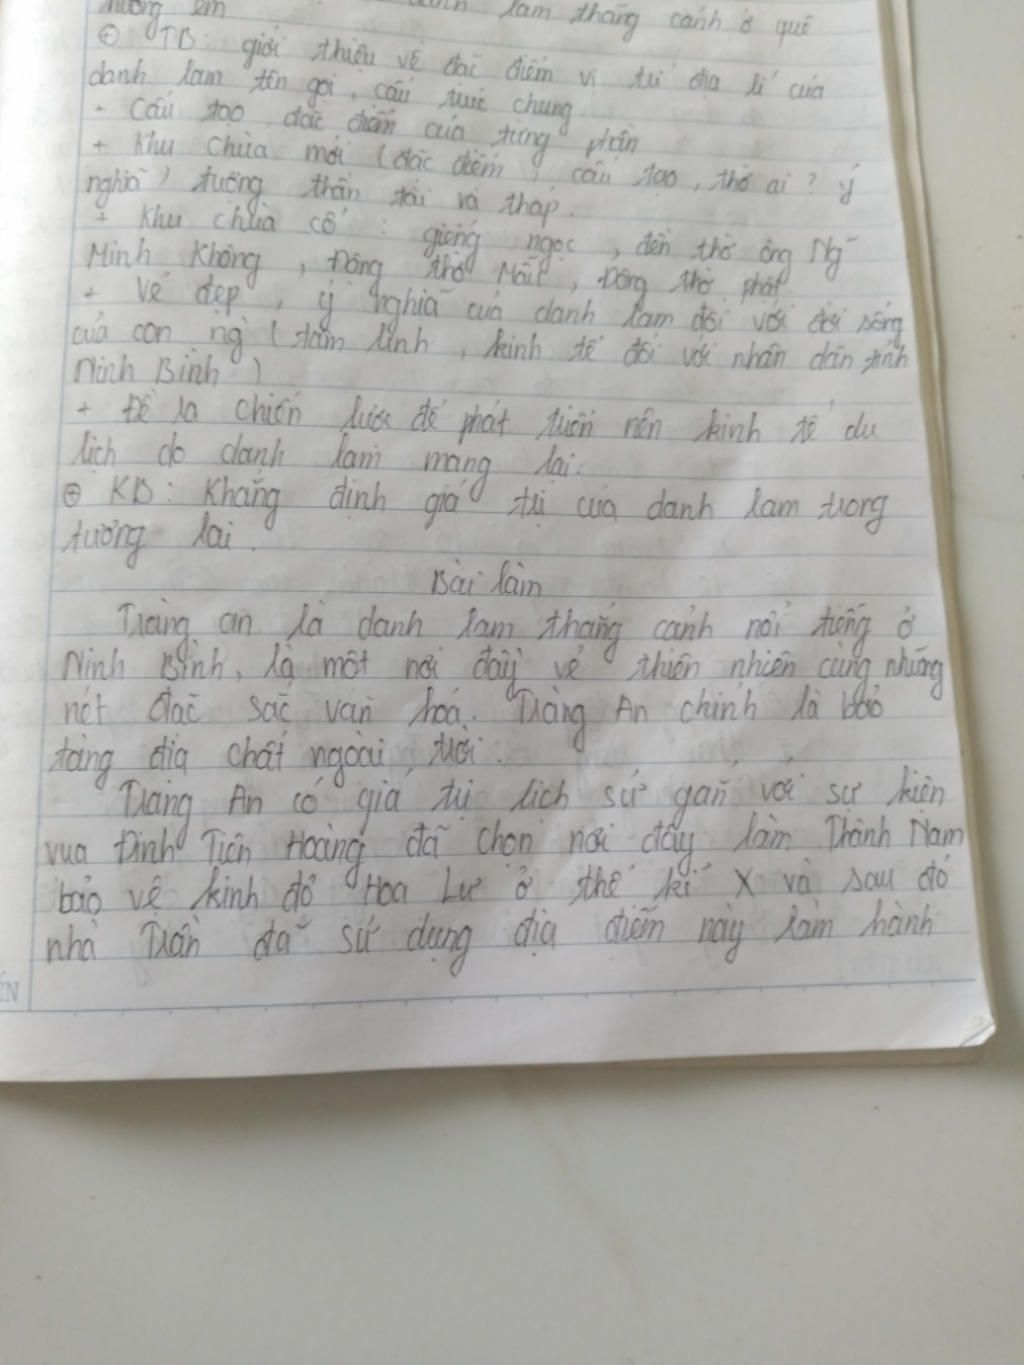 hương em danh lam thắng cảnh ở quê
⊕ TB: giới thiệu về đặc điểm vị trí địa lí của
danh lam tên gọi, cấu trúc chung.
+ Cấu tạo, đặc điểm của từng phần
+ Khu chùa mới (đặc điểm, cấu tạo, thờ ai? ý
nghĩa) tượng thần tài và tháp.
+ Khu chùa cổ: giếng ngọc, đền thờ ông Ng~
Minh Không, Động thờ Mẫu, Động thờ phật
+ Vẻ đẹp, ý nghĩa của danh lam đối với đời sống
của con ng` (tâm linh, kinh tế đối với nhân dân tỉnh
Ninh Bình)
+ Đề ra chiến lược để phát triển nền kinh tế du
lịch do danh lam mang lại.
⊕ KB: Khẳng định giá trị của danh lam trong
tương lai.
Bài làm
Tràng an là danh lam thắng cảnh nổi tiếng ở
Ninh Bình, là một nơi đầy vẻ thiên nhiên cùng những
nét đặc sắc văn hoá. Tràng An chính là bảo
tàng địa chất ngoài trời.
Tràng An có giá trị lịch sử gắn với sự kiện
vua Đinh Tiên Hoàng đã chọn nơi đây làm Thành Nam
bảo vệ kinh đô Hoa Lư ở thế kỉ X và sau đó
nhà Trần đã sử dụng địa điểm này làm hành
ẾN